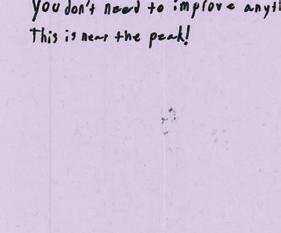 You don't need to improve
This is near the peak!